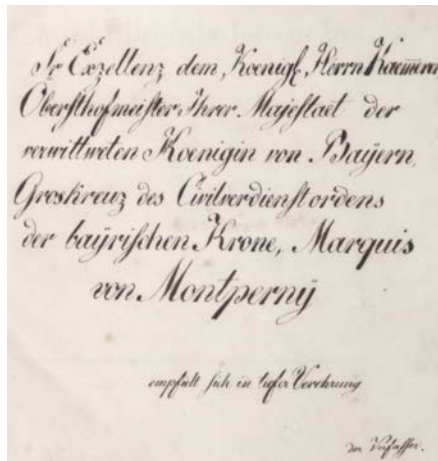 Sr Exzellenz dem, Koenigl, Herrn Kaem̅erer
Obersthofmeister Ihrer Majestaet der
verwittweten Koenigin von Bayern,
Groskreuz des Civilverdienstordens
der baÿrischen Krone, Marquis
von Montpernÿ
empfielt sich in tiefer Verehrung
der Verfasser.